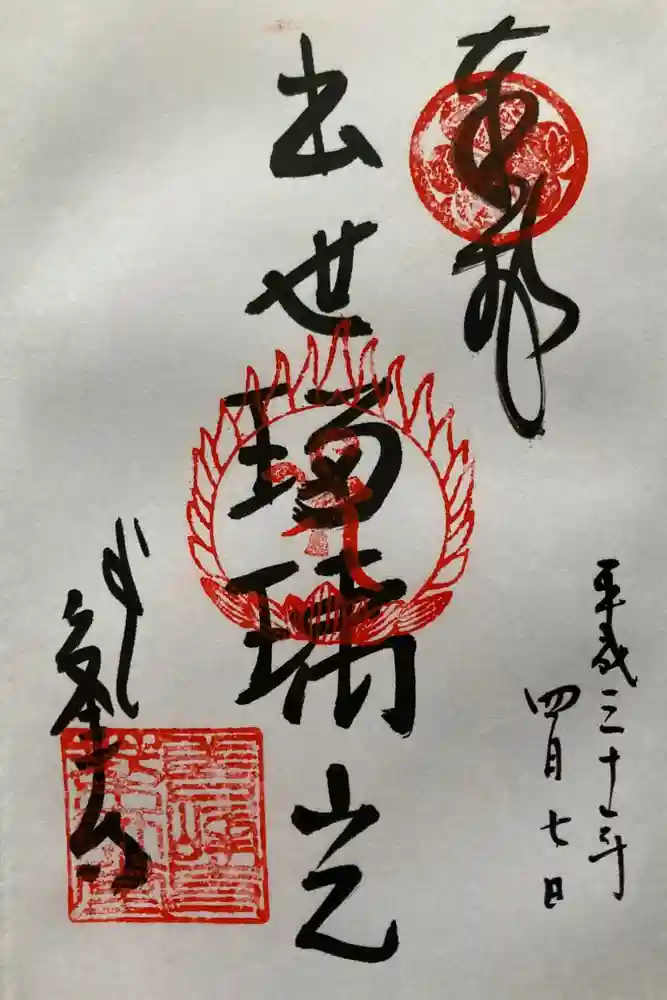 奉拝
平成三十一年
四月七日
出世瑠璃光
よし峯寺